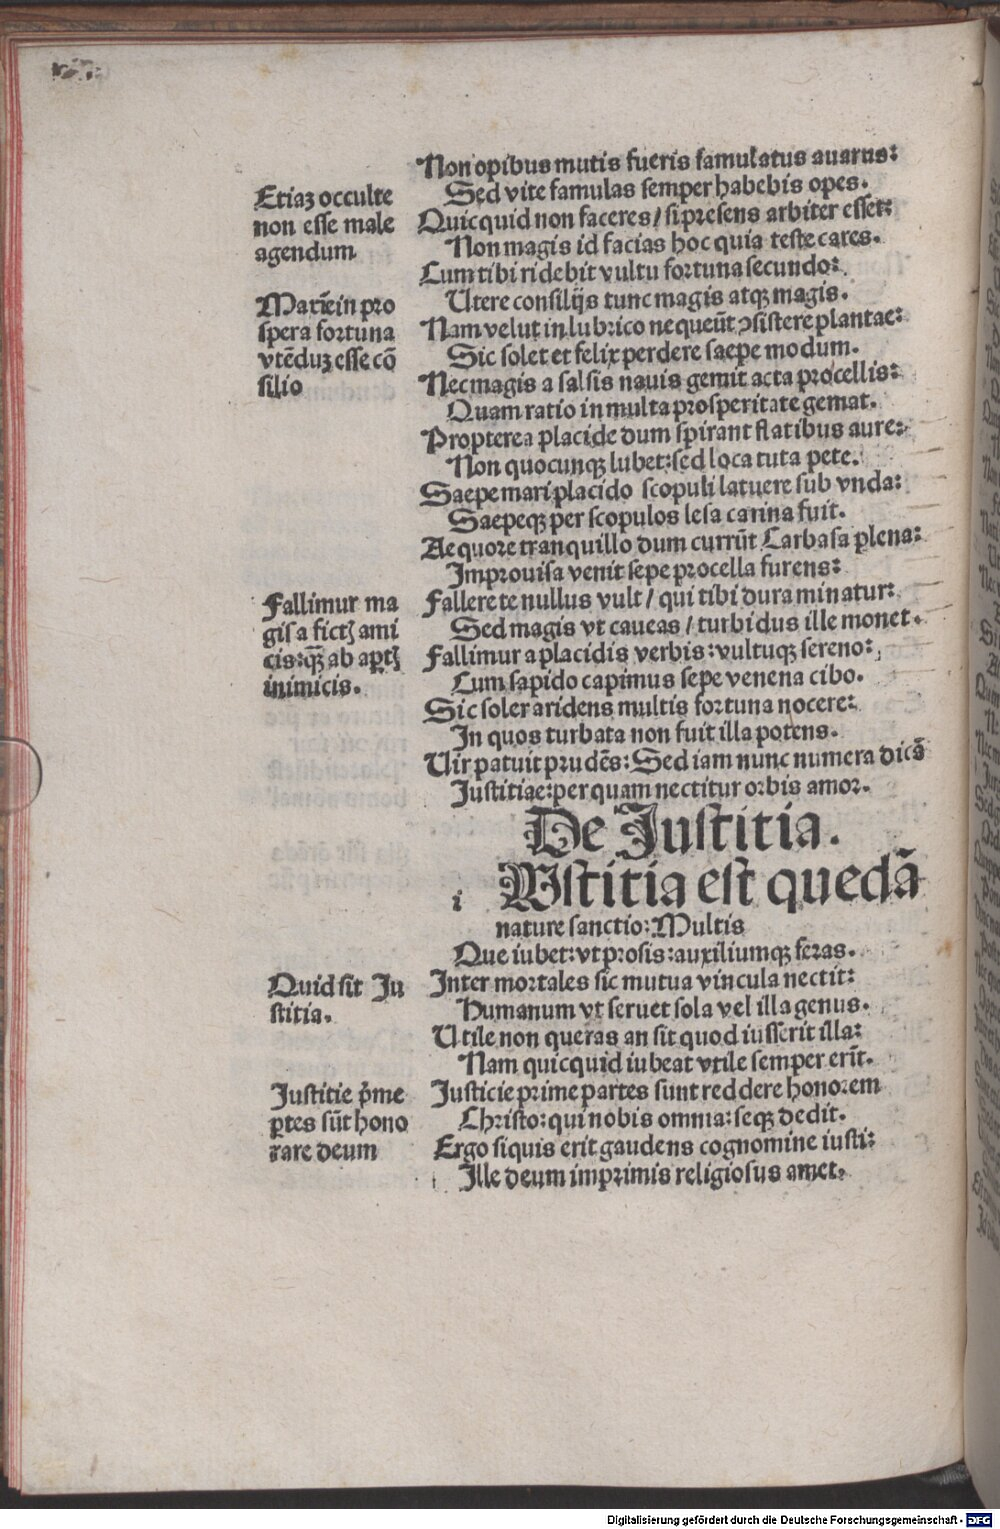 Non opibus mutis fueris famulatus auarus:
Sed vite famulas semper habebis opes.
Etiaʒ occulte
non esse male
agendum
Quicquid non faceres / si presens arbiter esset:
Non magis id facias hoc quia teste cares.
Cum tibi ridebit vultu fortuna secundo:
Utere consilijs tunc magis atqʒ magis.
Marīe in pro
spera fortuna
vtēduʒ esse cō
silio
Nam velut in lubrico nequeūt ꝯsistere plantae:
Sic solet et felix perdere saepe modum.
Nec magis a salsis nauis gemit acta procellis:
Quam ratio in multa prosperitate gemat.
Propterea placide dum spirant flatibus aure:
Non quocunqʒ lubet: sed loca tuta pete.
Saepe mari placido scopuli latuere sub vnda:
Saepeqʒ per scopulos lesa carina fuit.
Aequore tranquillo dum currūt Carbasa plena:
Improuisa venit sepe procella furens:
Fallimur ma
gis a fictꝭ ami
cis: qʒ̄ ab aꝑtꝭ
inimicis.
Fallere te nullus vult / qui tibi dura minatur:
Sed magis vt caueas / turbidus ille monet.
Fallimur a placidis verbis: vultuqʒ sereno:
Cum sapido capimus sepe venena cibo.
Sic soler aridens multis fortuna nocere:
In quos turbata non fuit illa potens.
Uir patuit prudēs: Sed iam nunc numera dicā
Justitiae: per quam nectitur orbis amor.
De Justitia.
i Wstitia est quedā
nature sanctio: Multis
Que iubet: vt prosis: auxiliumqʒ feras.
Quid sit Ju
stitia.
Inter mortales sic mutua vincula nectit:
Humanum vt seruet sola vel illa genus.
Utile non queras an sit quod iusserit illa:
Nam quicquid iubeat vtile semper erit̄.
Justitie p̄me
ꝑtes sūt hono
rare deum
Justicie prime partes sunt reddere honorem
Christo: qui nobis omnia: seqʒ dedit.
Ergo siquis erit gaudens cognomine iusti:
Ille deum imprimis religiosus amet.
Digitalisierung gefördert durch die Deutsche Forschungsgemeinschaft - DFG